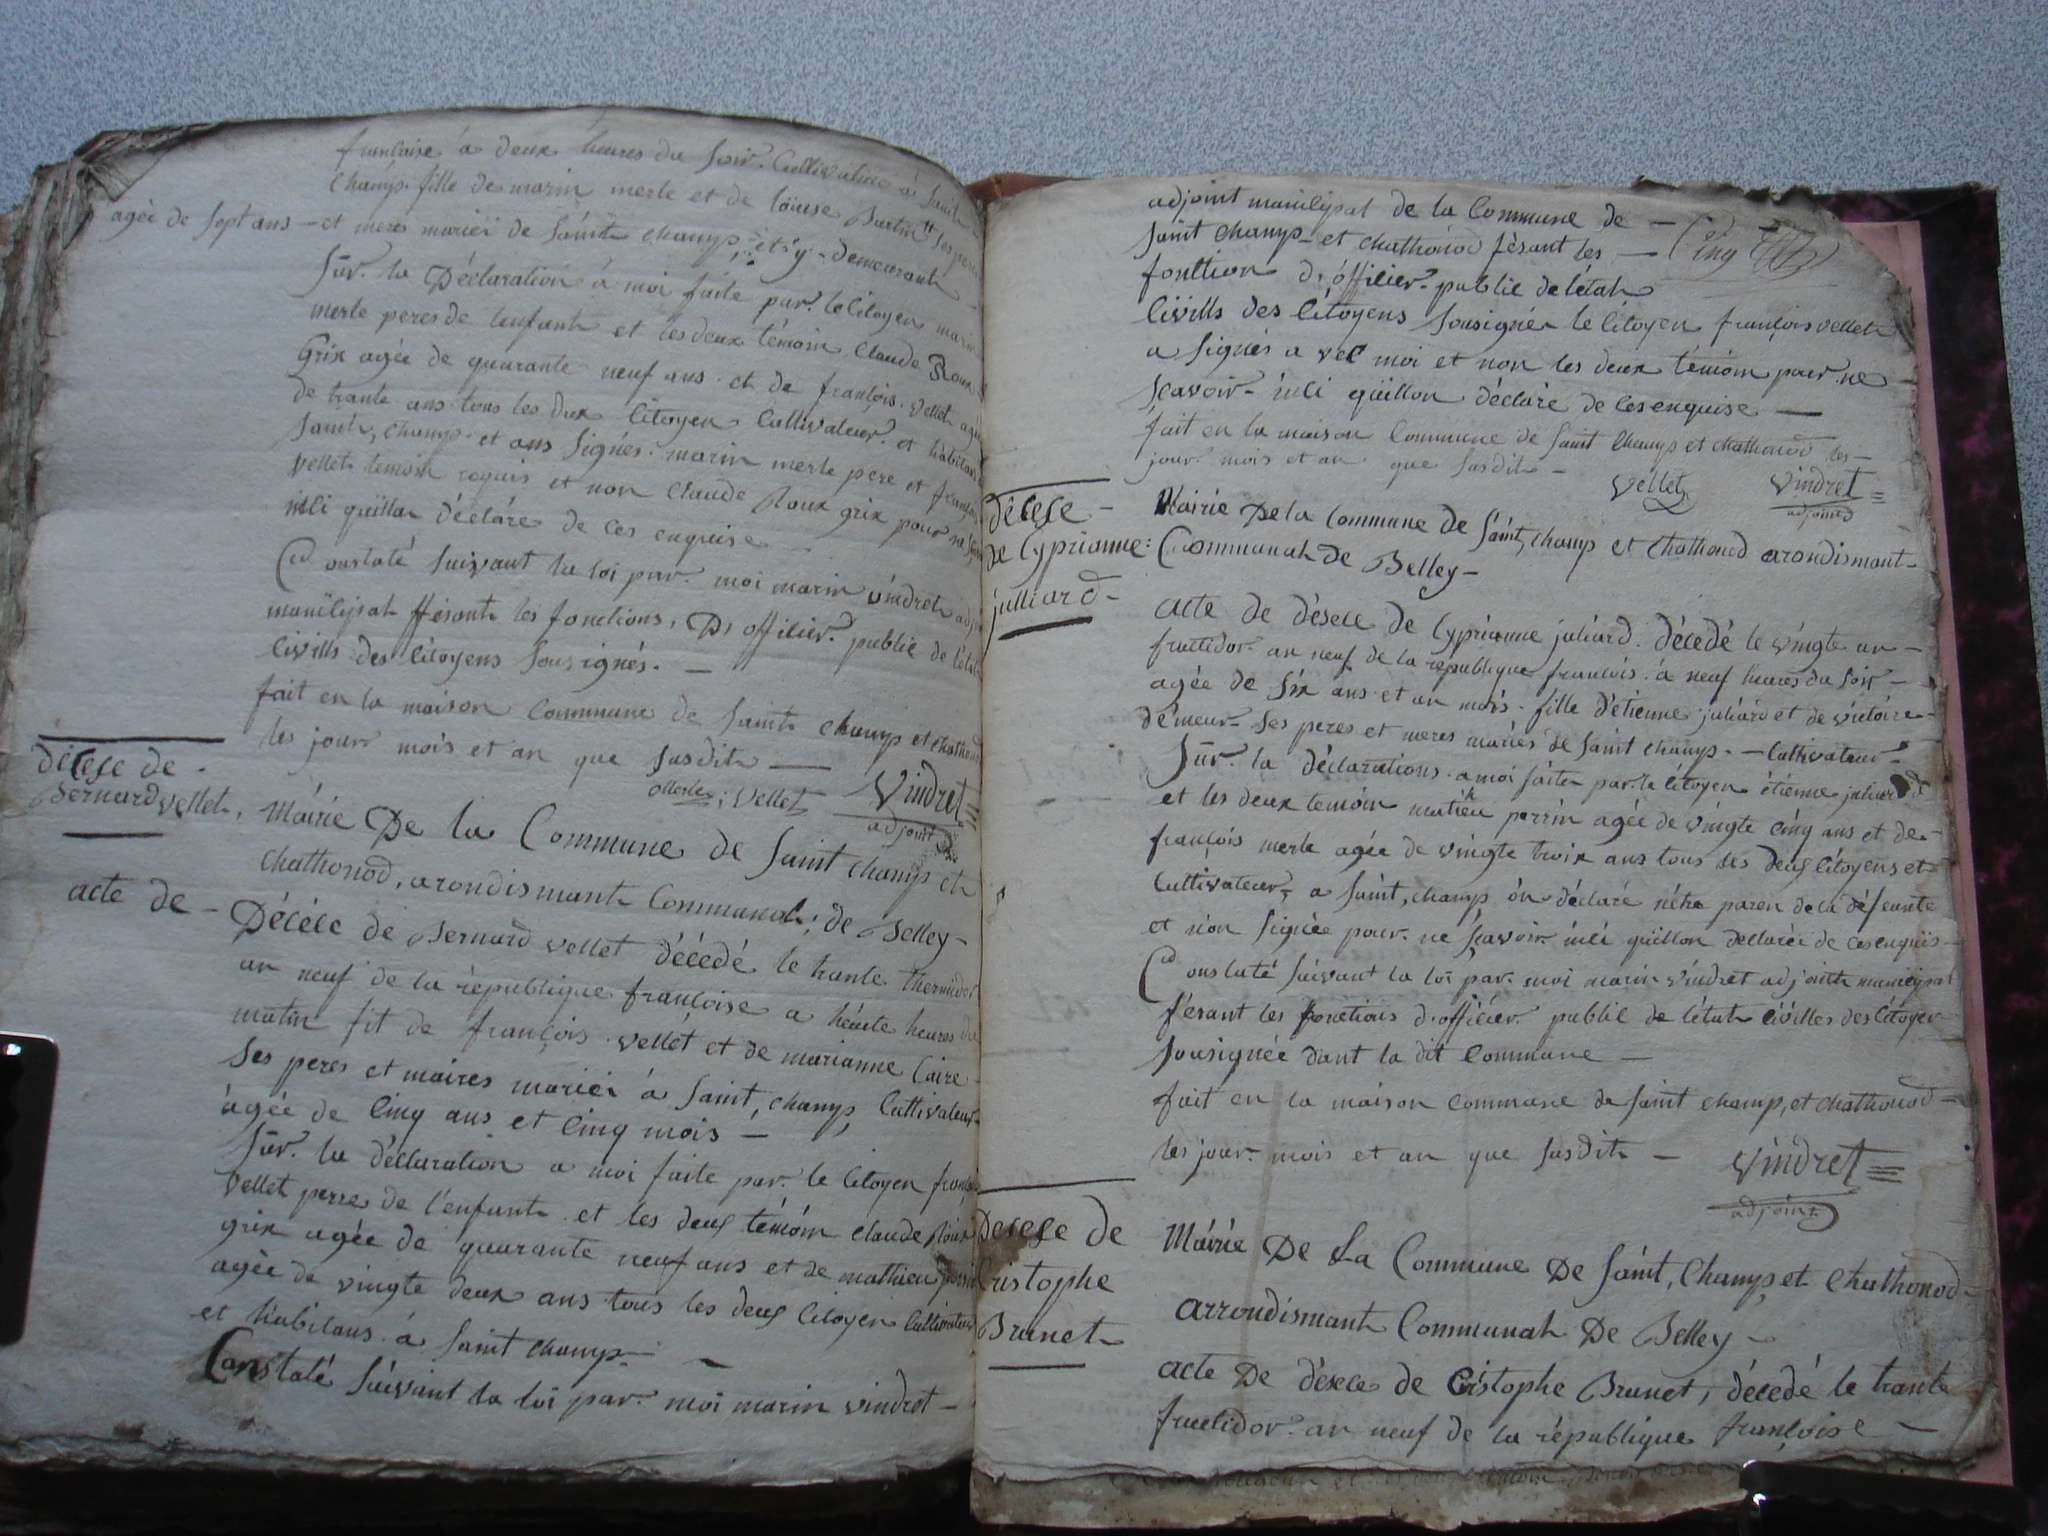 francaise à deux heures du soir. Cultivatrice à saint
champ. fille de marin merle et de loüise Bartin ses peres
agée de sept ans — et meres mariéz de saint champ, et s'y demeurant
sur la Déclaration à moi faite par le Citoyen marin
merle peres de lenfant et les deux témoin Claude Roux
Grix agée de quarante neuf ans et de françois vellet agée
de trante ans tous les deux Citoyen Cultivateur et habitans
saint, champ et ans signés marin merle pere et françois
vellet temoin requis et non Claude Roux grix pour ne
inli quillon déclaré de ces enquise
Constaté suivant la loi par moi marin vindret adjoint
manilipal fésant les fonctions, D'officier public de létat
Civills des Citoyens sousignés. —
fait en la maison commune de saint champ et chathonod
les jour mois et an que susdit —
Merle vellet Vindret
adjoint
décese de
Bernard vellet,
Mairie De la Commune de saint champ et
chathonod, arondismant Communal, de Belley —
acte de — Décéce de Bernard vellet décédé le trante thermidor
an neuf de la république françoise a heuite heures du
matin fit de françois vellet et de marianne Caire
ses peres et maires mariéz à saint, champ, Cultivateur
agée de Cinq ans et Cinq mois —
sur la déclaration a moi faite par le Citoyen françois
vellet perres de l'enfant et les deux témoin claude Roux
grix agée de quarante neuf ans et de mathieu perrin
agée de vingte deux ans tous les deux Citoyen Cultivateur
et habitans à saint champ —
Constaté suivant la loi par moi marin vindret —
adjoint manilipal de la Commune de —
saint champ et chathonod fésant les — Cinq
fonction d'officier public de létat
Civills des Citoyens sousignée le Citoyen françois vellet
a signés a vec moi et non les deux témoin pour ne
scavoir inli quillon déclaré de ces enquise —
fait en la maison Commune de saint champ et chathonod les —
jour mois et an que susdit —
vellet vindret
adjoint
décese —
de Cyprianne
julliard —
Mairie De la Commune de saint, champ et chathonod arondismant
Communal de Belley —
acte de désece de Cyprianne juliard décedé le vingte un —
fructidor an neuf de la republique françois à neuf heures du soir —
agée de six ans et un mois fille d'étienne juliard et de victoire
démeur ses peres et meres mariés de saint champ — Cultivateur
sur la déclarations a moi faite par le Citoyen étienne juliard
et les deux temoin mathieu perrin agée de vingte Cinq ans et de
françois merle agée de vingte troix ans tous les deux Citoyens et
Cultivateur a saint, champ on déclaré n'étre paren de la défeunte
et n'on signée pour ne scavoir inli quillon declarée de ces enquis —
Constaté suivant la loi par moi marin vindret adjoint manicipal
fésant les fonctions d'officier public de létat civilles des Citoyen
sousignée dant la dit Commune —
fait en la maison commune de saint champ, et chathonod —
les jour mois et an que susdit — vindret
adjoint
Decese de
Cristophe
Brunet
Mairie De La Commune De saint, champ, et chathonod —
arrondismant Communal De Belley —
acte De désece de Cristophe Brunet, décedé le trante
fructidor an neuf de la république françoise —